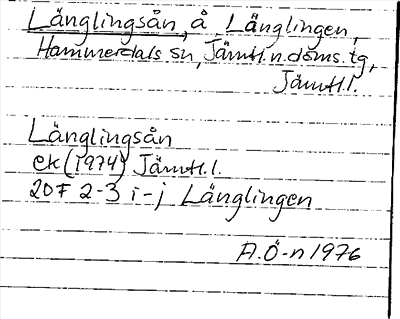 Länglingsån, å, Länglingen,
Hammerdals sn, Jämtl. n. doms. tg,
Jämtl. l.
Länglingsån
ek (1974) Jämtl. l.
20F 2-3 i-j Länglingen
A.Ö-n 1976